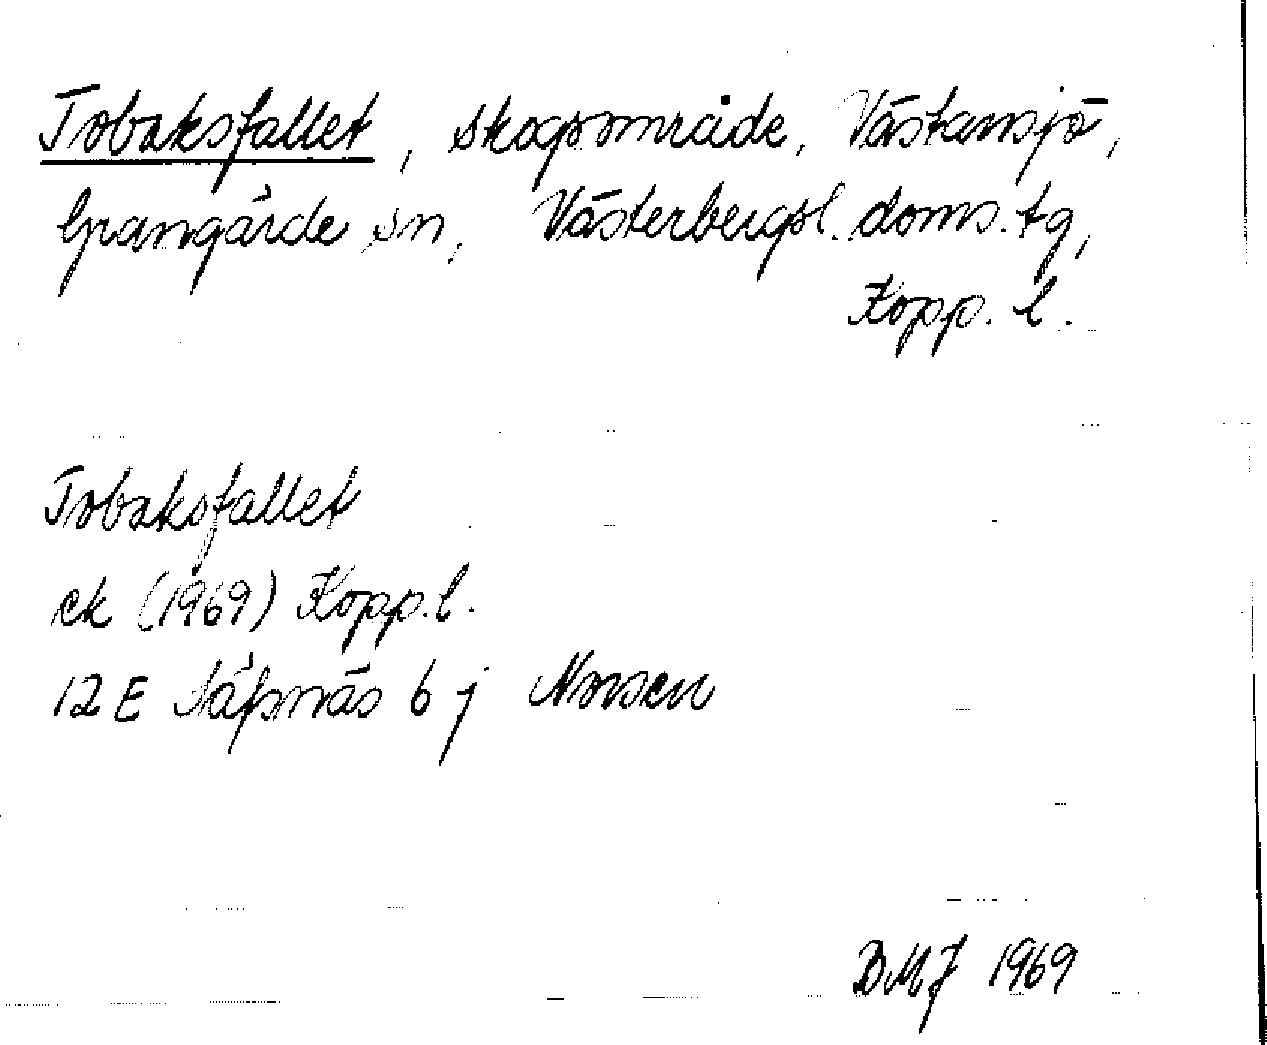 Tobaksfallet, skogsområde, Västansjö,
Grangärde sn, Västerbergsl. doms. tg,
Kopp. l.
Tobaksfallet
ek (1969) Kopp. l.
12 E Säfsnäs 6 j Norsen
BMJ 1969